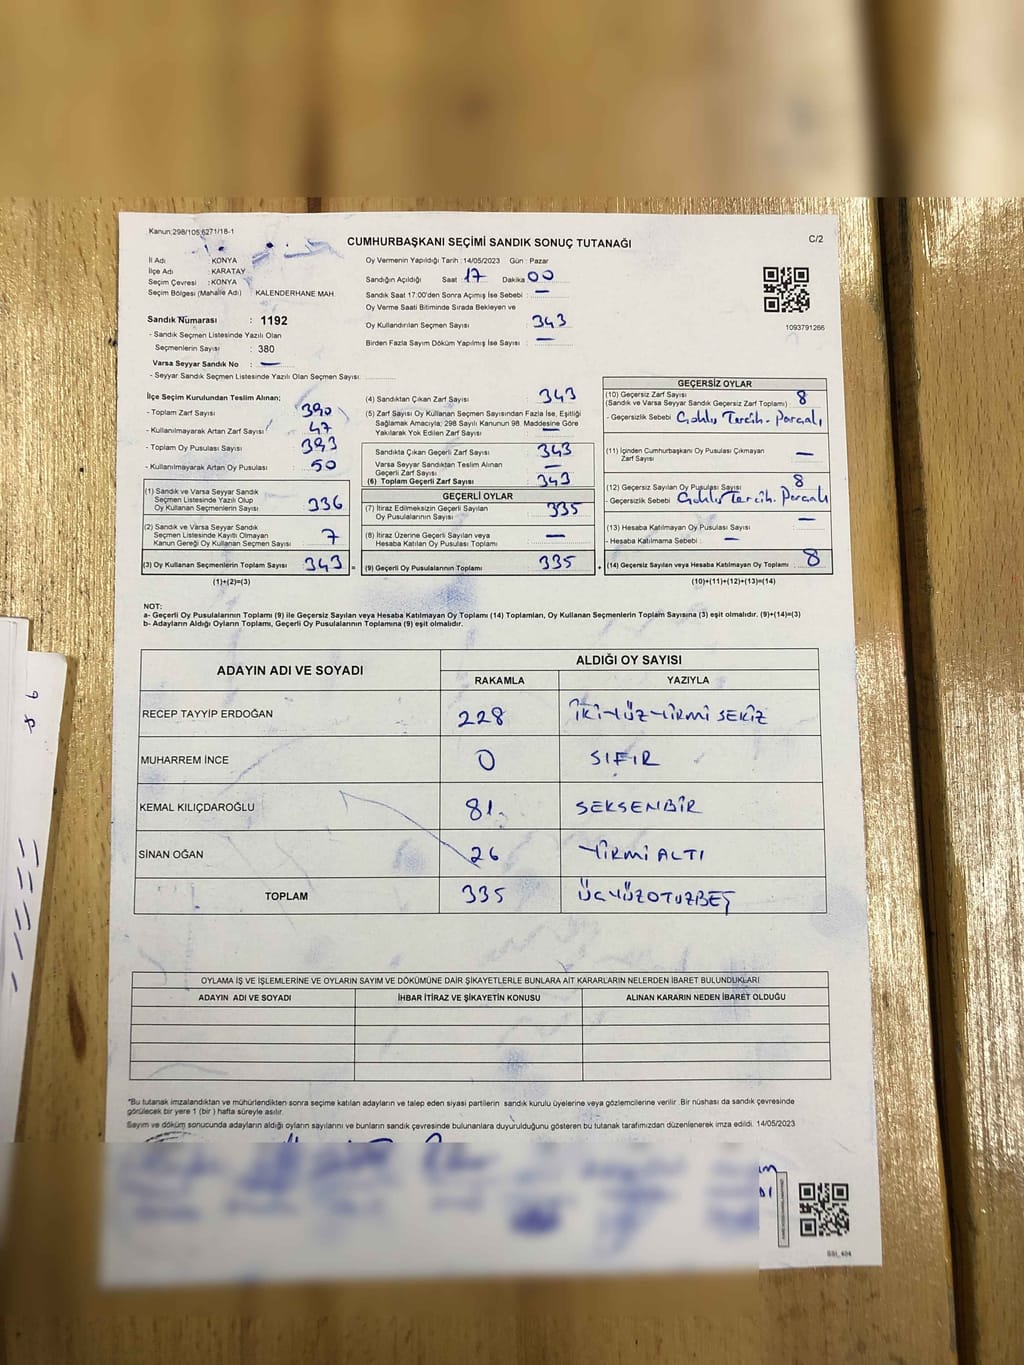 Kanun:298/105;6271/18-1
CUMHURBAŞKANI SEÇİMİ SANDIK SONUÇ TUTANAĞI
C/2
İl Adı : KONYA
İlçe Adı : KARATAY
Seçim Çevresi : KONYA
Seçim Bölgesi (Mahalle Adı) KALENDERHANE MAH.
Sandık Numarası : 1192
- Sandık Seçmen Listesinde Yazılı Olan
Seçmenlerin Sayısı : 380
Varsa Seyyar Sandık No : —
- Seyyar Sandık Seçmen Listesinde Yazılı Olan Seçmen Sayısı:
Oy Vermenin Yapıldığı Tarih : 14/05/2023 Gün : Pazar
Sandığın Açıldığı Saat 17 Dakika 00
Sandık Saat 17:00'den Sonra Açımış İse Sebebi : —
Oy Verme Saati Bitiminde Sırada Bekleyen ve
Oy Kullandırılan Seçmen Sayısı : 343
Birden Fazla Sayım Döküm Yapılmış İse Sayısı : —
1093791266
İlçe Seçim Kurulundan Teslim Alınan;
- Toplam Zarf Sayısı : 390
- Kullanılmayarak Artan Zarf Sayısı : 47
- Toplam Oy Pusulası Sayısı : 393
- Kullanılmayarak Artan Oy Pusulası : 50
(1) Sandık ve Varsa Seyyar Sandık
Seçmen Listesinde Yazılı Olup
Oy Kullanan Seçmenlerin Sayısı : 336
(2) Sandık ve Varsa Seyyar Sandık
Seçmen Listesinde Kayıtlı Olmayan
Kanun Gereği Oy Kullanan Seçmen Sayısı : 7
(3) Oy Kullanan Seçmenlerin Toplam Sayısı : 343 =
(1)+(2)=(3)
(4) Sandıktan Çıkan Zarf Sayısı : 343
(5) Zarf Sayısı Oy Kullanan Seçmen Sayısından Fazla İse, Eşitliği
Sağlamak Amacıyla; 298 Sayılı Kanunun 98. Maddesine Göre
Yakılarak Yok Edilen Zarf Sayısı : —
Sandıkta Çıkan Geçerli Zarf Sayısı : 343
Varsa Seyyar Sandıktan Teslim Alınan
Geçerli Zarf Sayısı : —
(6) Toplam Geçerli Zarf Sayısı : 343
GEÇERLİ OYLAR
(7) İtiraz Edilmeksizin Geçerli Sayılan
Oy Pusulalarının Sayısı : 335
(8) İtiraz Üzerine Geçerli Sayılan veya
Hesaba Katılan Oy Pusulası Toplamı : —
(9) Geçerli Oy Pusulalarının Toplamı : 335 +
GEÇERSİZ OYLAR
(10) Geçersiz Zarf Sayısı
(Sandık ve Varsa Seyyar Sandık Geçersiz Zarf Toplamı) : 8
- Geçersizlik Sebebi Çoklu Tercih. Parçalı
(11) İçinden Cumhurbaşkanı Oy Pusulası Çıkmayan
Zarf Sayısı : —
(12) Geçersiz Sayılan Oy Pusulası Sayısı : 8
- Geçersizlik Sebebi Çoklu Tercih. Parçalı
(13) Hesaba Katılmayan Oy Pusulası Sayısı : —
- Hesaba Katılmama Sebebi : —
(14) Geçersiz Sayılan veya Hesaba Katılmayan Oy Toplamı : 8
(10)+(11)+(12)+(13)=(14)
NOT:
a- Geçerli Oy Pusulalarının Toplamı (9) ile Geçersiz Sayılan veya Hesaba Katılmayan Oy Toplamı (14) Toplamları, Oy Kullanan Seçmenlerin Toplam Sayısına (3) eşit olmalıdır. (9)+(14)=(3)
b- Adayların Aldığı Oyların Toplamı, Geçerli Oy Pusulalarının Toplamına (9) eşit olmalıdır.
ADAYIN ADI VE SOYADI
ALDIĞI OY SAYISI
RAKAMLA YAZIYLA
RECEP TAYYİP ERDOĞAN 228 İKİYÜZYİRMİ SEKİZ
MUHARREM İNCE 0 SIFIR
KEMAL KILIÇDAROĞLU 81. SEKSENBİR
SİNAN OĞAN 26 YİRMİ ALTI
TOPLAM 335 ÜÇYÜZOTUZBEŞ
OYLAMA İŞ VE İŞLEMLERİNE VE OYLARIN SAYIM VE DÖKÜMÜNE DAİR ŞİKAYETLERLE BUNLARA AİT KARARLARIN NELERDEN İBARET BULUNDUKLARI
ADAYIN ADI VE SOYADI İHBAR İTİRAZ VE ŞİKAYETİN KONUSU ALINAN KARARIN NEDEN İBARET OLDUĞU
*Bu tutanak imzalandıktan ve mühürlendikten sonra seçime katılan adayların ve talep eden siyasi partilerin sandık kurulu üyelerine veya gözlemcilerine verilir. Bir nüshası da sandık çevresinde
görülecek bir yere 1 (bir ) hafta süreyle asılır.
Sayım ve döküm sonucunda adayların aldığı oyların sayılarını ve bunların sandık çevresinde bulunanlara duyurulduğunu gösteren bu tutanak tarafımızdan düzenlenerek imza edildi. 14/05/2023